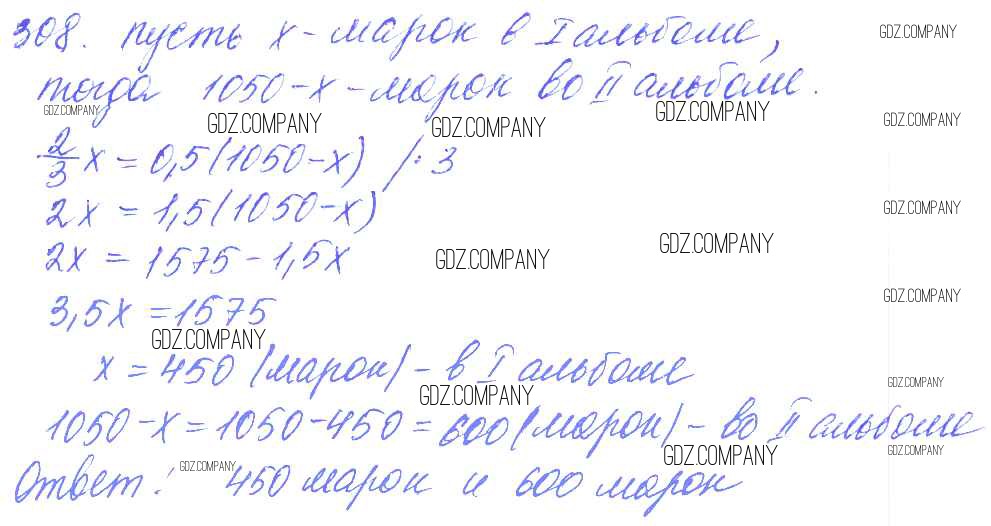 308. Пусть x - марок в I альбоме,
GDZ.COMPANY
тогда 1050-x - марок во II альбоме.
GDZ.COMPANY
GDZ.COMPANY
GDZ.COMPANY
GDZ.COMPANY
GDZ.COMPANY
2/3 x = 0,5(1050-x) /: 3
2x = 1,5(1050-x)
GDZ.COMPANY
2x = 1575 - 1,5x
GDZ.COMPANY
GDZ.COMPANY
3,5x = 1575
GDZ.COMPANY
GDZ.COMPANY
x = 450 (марок) - в I альбоме
GDZ.COMPANY
GDZ.COMPANY
1050-x = 1050-450 = 600 (марок) - во II альбоме
GDZ.COMPANY
GDZ.COMPANY
GDZ.COMPANY
Ответ: 450 марок и 600 марок